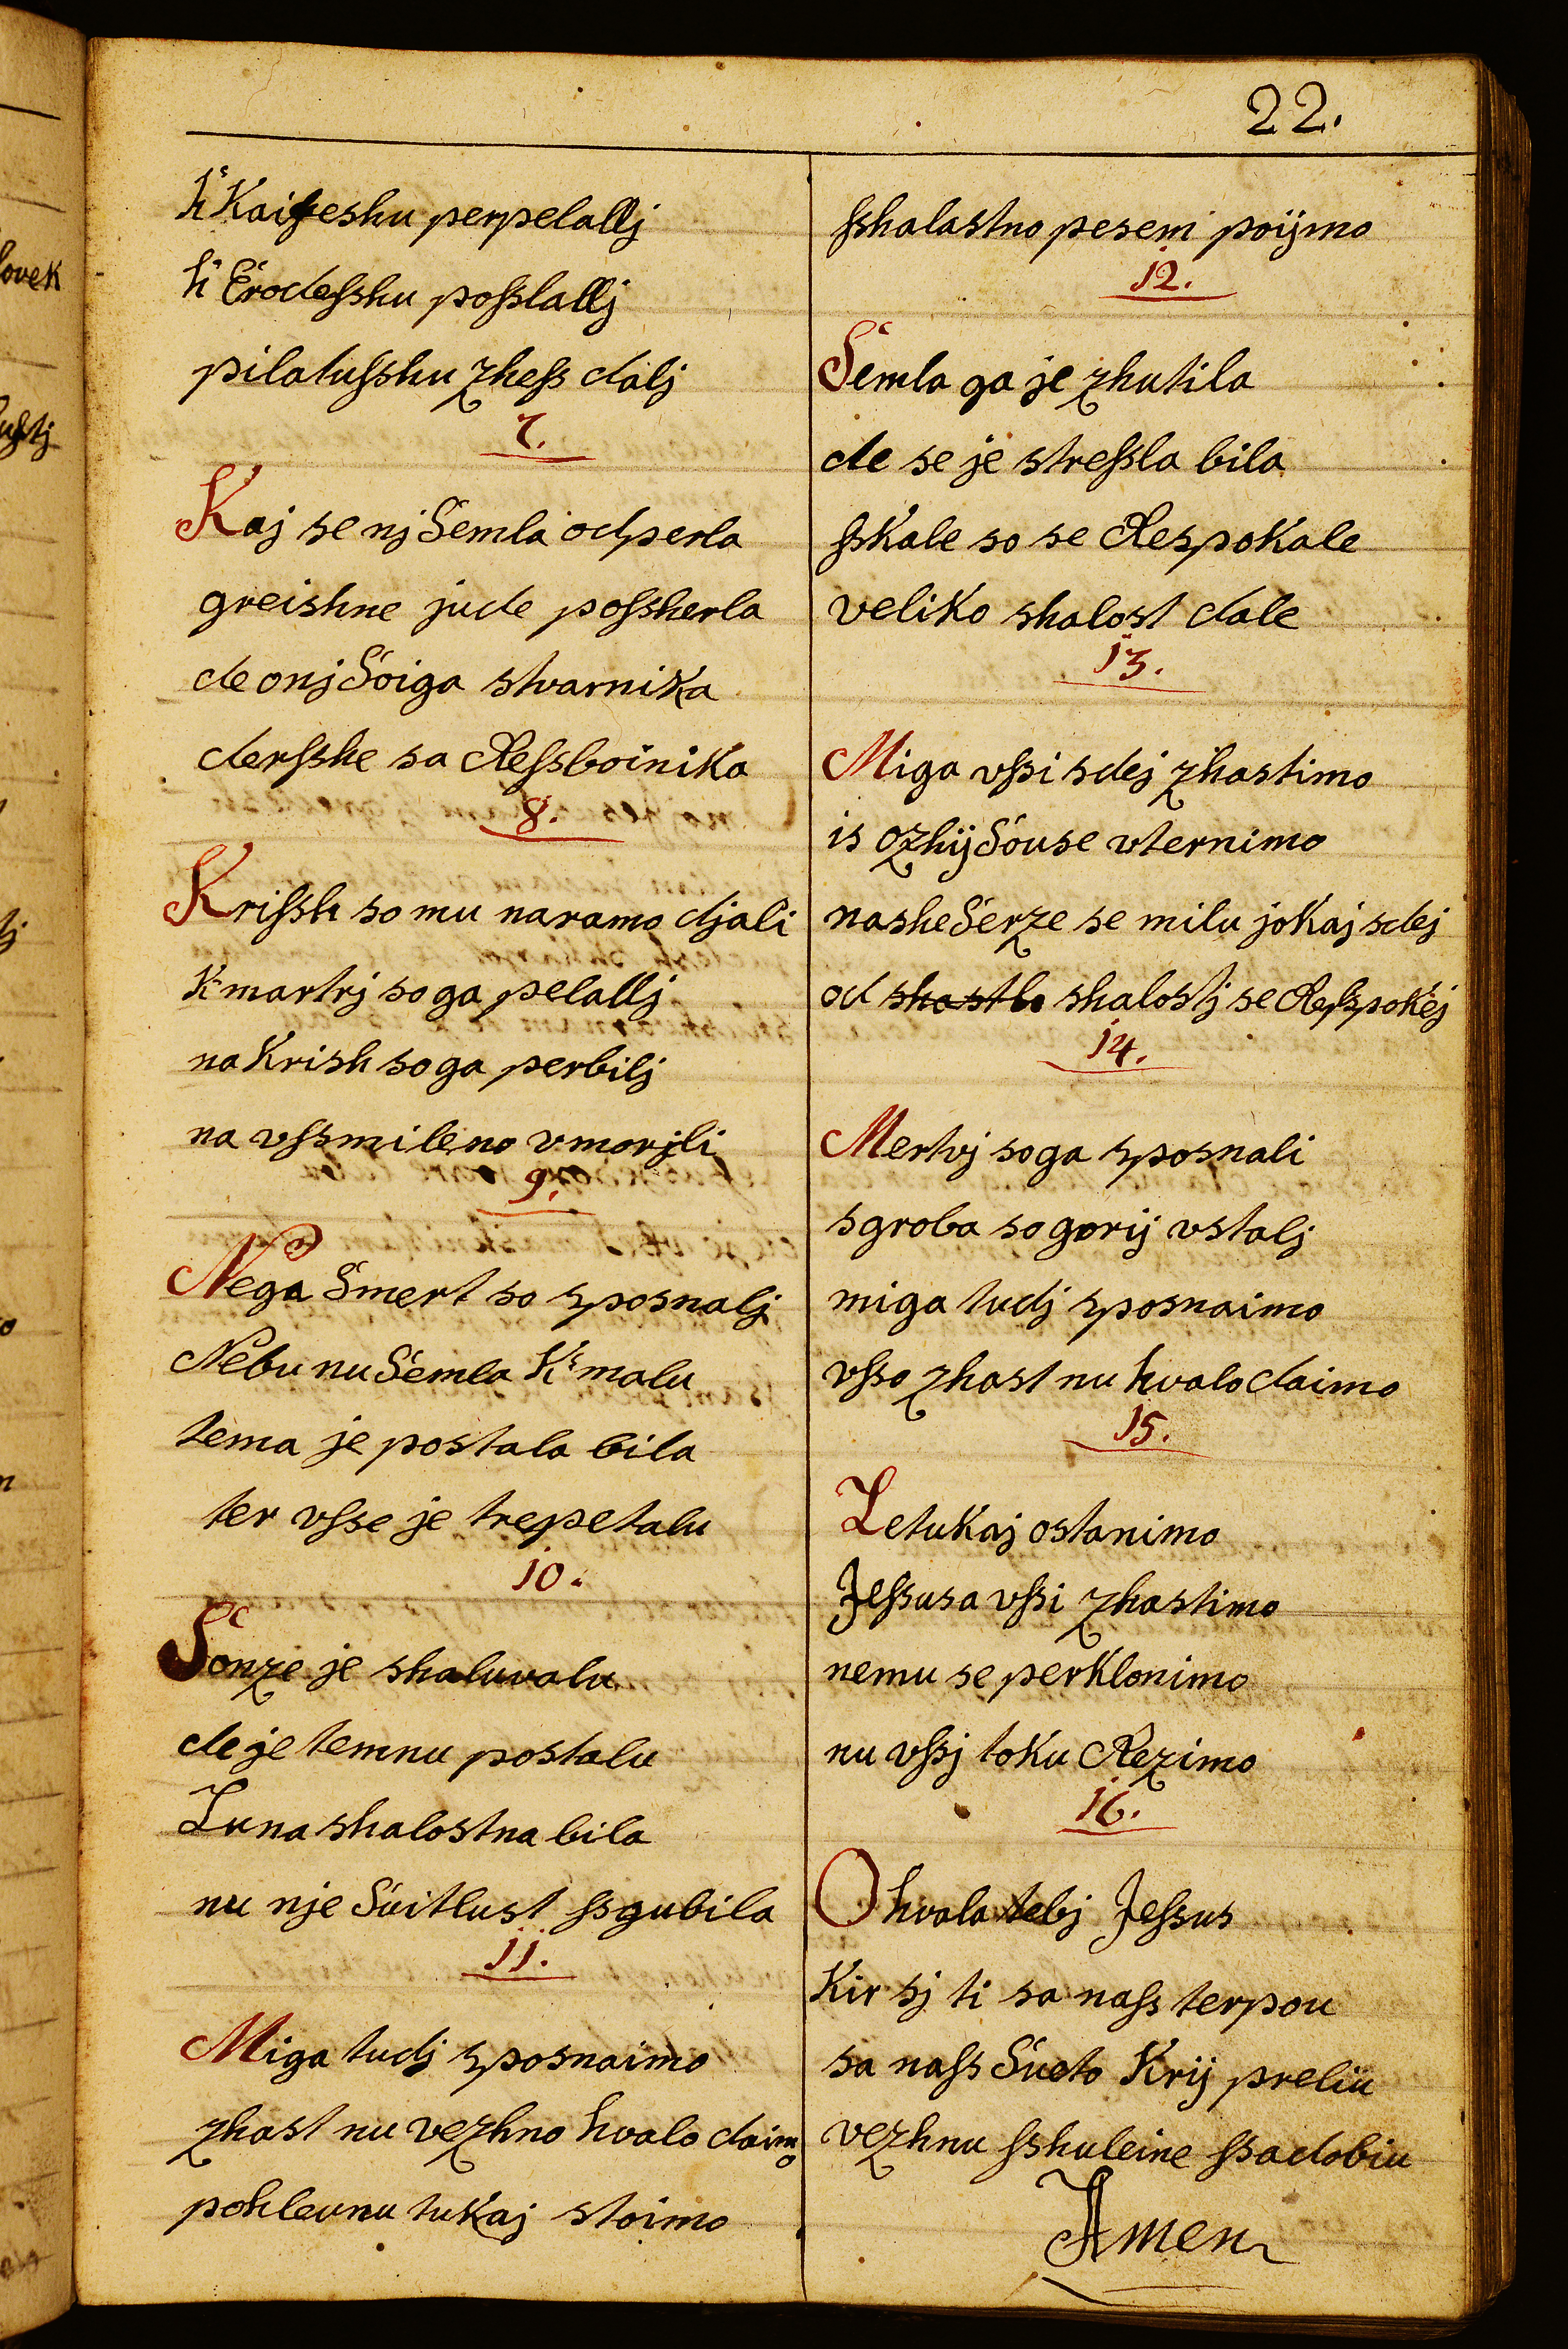 22.
k' Kaifeshu perpelallj
k' Erodeſshu poſslallj
pilatuſshu zheſs dalj
7.
Kaj se nj Semla odperla
greishne jude poſsherla
de onj Soiga stvarnika
derſshe sa Reſsboinika
8.
Kriſsh so mu naramo djali
K' martrj so ga pelallj
na Krish so ga perbilj
na vſsmileno vmorjli
9.
Nega Smert so sposnalj
Nebu nu Semla K' malu
tema je postala bila
ter vſse je trepetalu
10.
Sonze je shaluvalu
de je temnu postalu
Luna shalostna bila
nu nje Svitlust ſsgubila
11.
Miga tudj sposnaimo
zhast nu vezhno hvalo daimo
pohleunu tukaj stoimo
ſshalastno pesem poijmo
12.
Semla ga je zhutila
de se je streſsla bila
ſskale so se Respokale
veliko shalost dale
13.
Miga vſsi sdej zhastimo
is ozhij Souse vternimo
nashe Serze se milu jokaj sdej
od shalostj se Reſspokej
14.
Mertvj so ga sposnali
s groba so gorij vstalj
miga tudj sposnaimo
vſso zhast nu hvalo daimo
15.
Letukaj ostanimo
Jeſsusa vſsi zhastimo
nemu se perklonimo
nu vſsj toku Rezimo
16.
O hvala tebj Jeſsus
Kir sj ti sa naſs terpou
sa naſs Sveto Krij preliu
vezhnu ſshuleine ſsadobiu
Amen